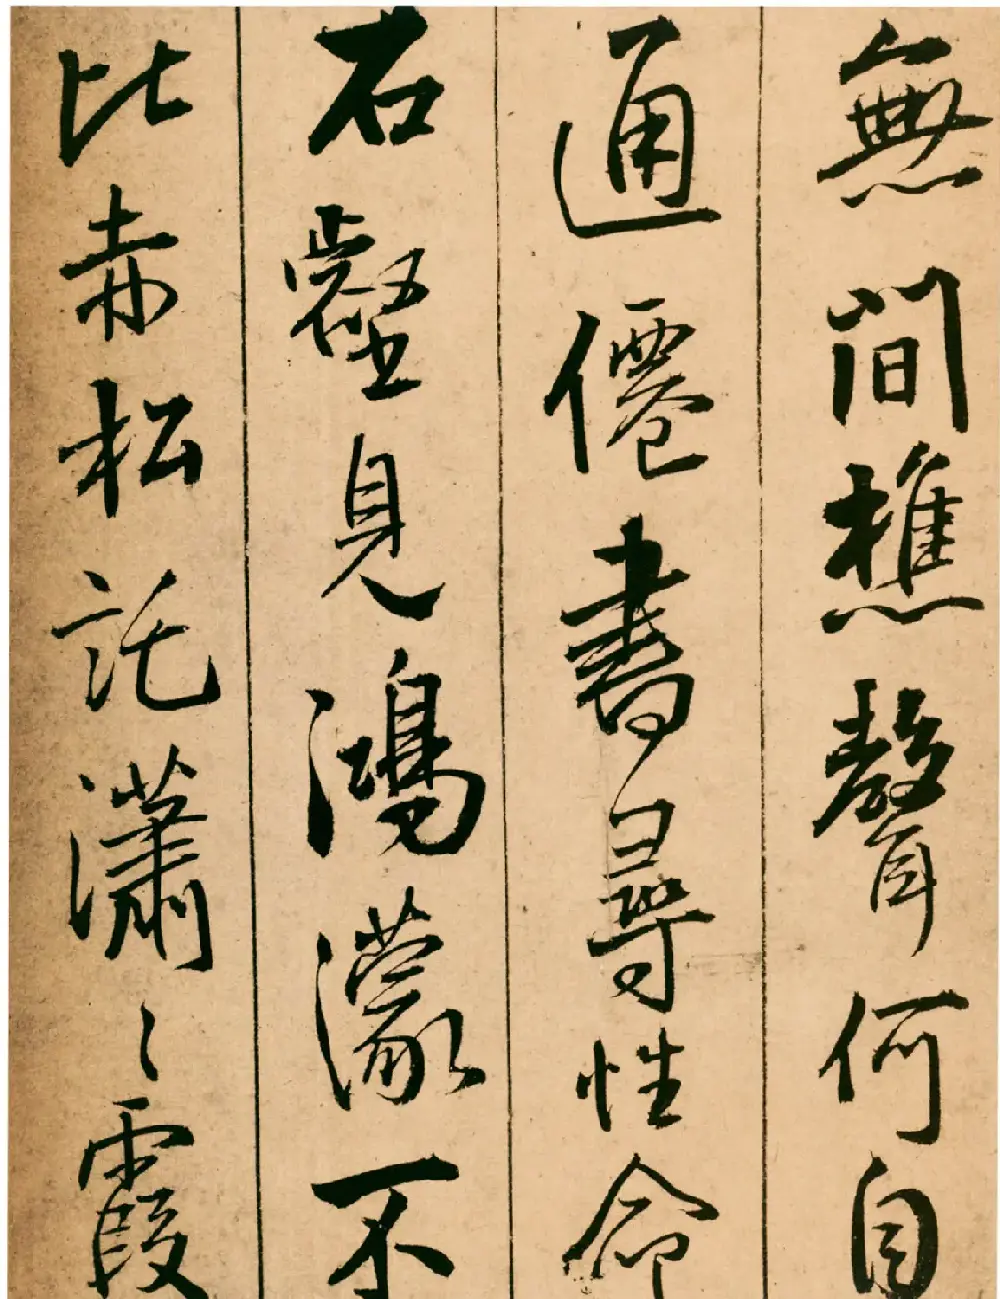 無間樵聲何自
通僊書尋性命
石壑見鴻濛不
比赤松託瀟〻霞